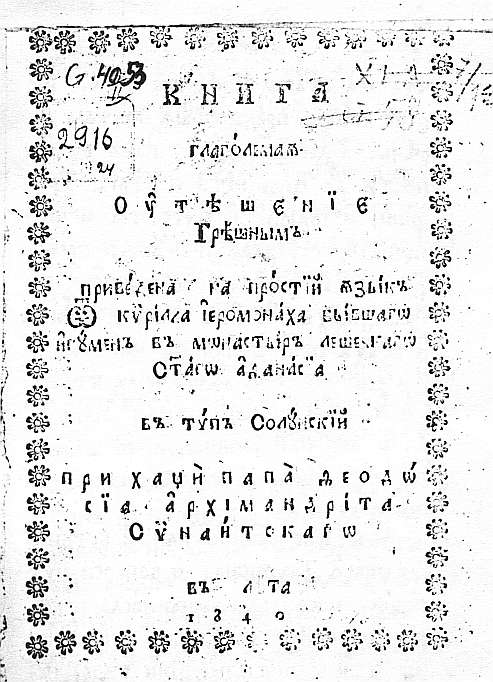 G. 4053
IV
КНИГА
2916
24
глаго́лемаѧ
Оу҆тѣшенїе
Грѣ́шнымъ
приве́дена на про́стїй ѧзы́къ
Ѿ кѵрі́лла і҆еромона́ха бы́вшагѡ
и҆гꙋ́менъ въ монасты́ръ лешевскагѡ
Ст҃агѡ а҆ѳанасїа
въ тѵ́пъ Солꙋ́нскїй
при хаџѝ папа̀ ѳеодѡ́
сїа а҆рхїмандрі́та
Сѷнаи́тскагѡ
въ лѣта
1840